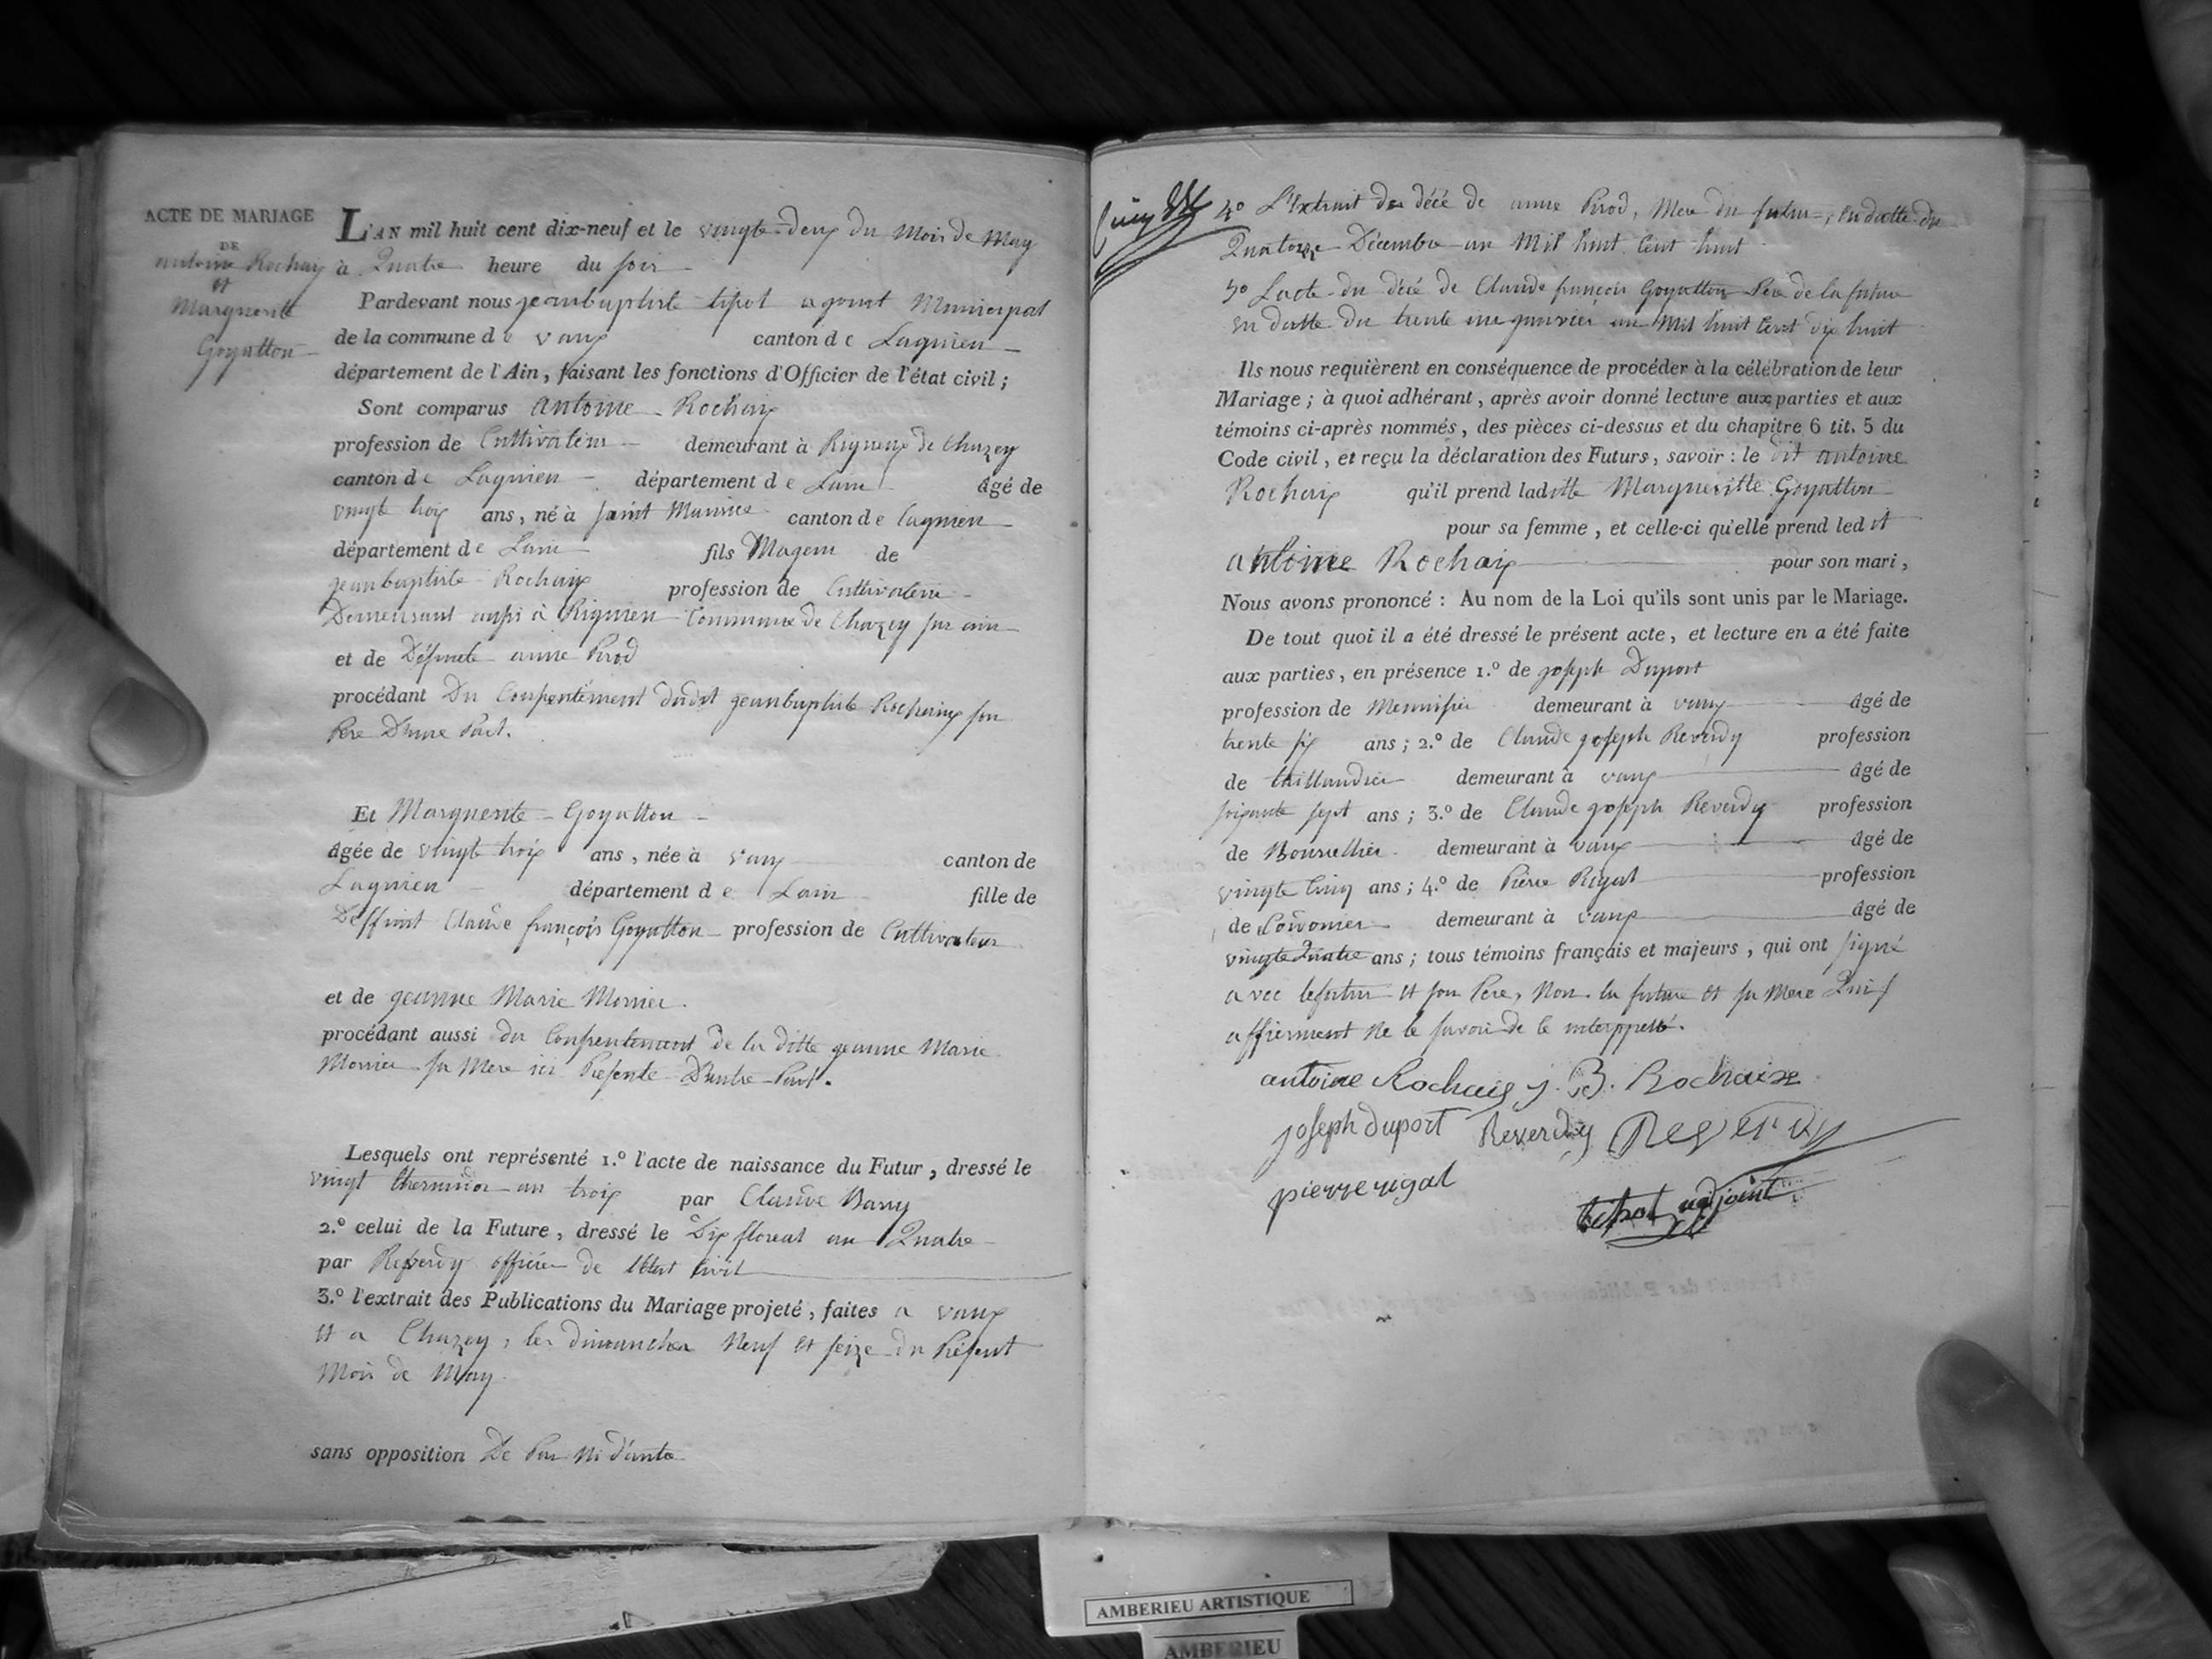 ACTE DE MARIAGE
DE
antoine Rochaix
et
Marguerite
Goyatton
L'AN mil huit cent dix-neuf et le vingte-deux du Mois de May
à Quatre heure du soir
Pardevant nous jeanbaptiste tipot agoint Municipal
de la commune de vaux canton de Lagnieu
département de l'Ain, faisant les fonctions d'Officier de l'état civil;
Sont comparus antoine Rochaix
profession de Cultivateur demeurant à Rigneux de Chazey
canton de Lagnieu département de Lain âgé de
vingt troix ans, né à saint Maurice canton de lagnieu
département de Lain fils Mageur de
jeanbaptiste Rochaix profession de Cultivateur
Demeurant aussi à Rignieu Commune de Chazey sur ain
et de Défunte anne Pirod
procédant Du Consentement dudit jeanbaptiste Rochaix son
Pere D'une Part.
Et Marguerite Goyatton
âgée de vingt troix ans, née à vaux canton de
Lagnieu département de Lain fille de
Deffunt Claude françois Goyatton profession de Cultivateur
et de jeanne Marie Monier.
procédant aussi du Consentement de la ditte jeanne Marie
Monier sa Mere ici Presente D'autre Part.
Lesquels ont représenté 1.º l'acte de naissance du Futur, dressé le
vingt thermidor an troix par Claude Bary
2.º celui de la Future, dressé le Dix floreal an Quatre
par Reverdy officier de l'état civil
3.º l'extrait des Publications du Mariage projeté, faites a vaux
et a Chazey, les dimanches Neuf et seize du Présent
Mois de May
sans opposition De Par ni d'autre
4º L'Extrait de décé de anne Pirod, Mere du futur, en datte du
Quatorze Décembre an Mil huit Cent huit
5º Lacte du décé de Claude françois Goyatton Pere de la future
en datte du trente un janvier an Mil huit Cent dix huit
Ils nous requièrent en conséquence de procéder à la célébration de leur
Mariage; à quoi adhérant, après avoir donné lecture aux parties et aux
témoins ci-après nommés, des pièces ci-dessus et du chapitre 6 tit. 5 du
Code civil, et reçu la déclaration des Futurs, savoir: le dit antoine
Rochaix qu'il prend laditte Margueritte Goyatton
pour sa femme, et celle-ci qu'elle prend ledit
antoine Rochaix pour son mari,
Nous avons prononcé: Au nom de la Loi qu'ils sont unis par le Mariage.
De tout quoi il a été dressé le présent acte, et lecture en a été faite
aux parties, en présence 1.º de joseph Duport
profession de Menuisier demeurant à vaux âgé de
trente six ans; 2.º de Claude joseph Reverdy profession
de taillandier demeurant à vaux âgé de
soixante sept ans; 3.º de Claude joseph Reverdy profession
de Bourellier demeurant à vaux âgé de
vingte Cinq ans; 4.º de Pierre Rigat profession
de demeurant à vaux âgé de
vingte Quatre ans; tous témoins français et majeurs, qui ont signé
avec le futur et son Pere, Non la future et sa Mere Qui
affierment ne le savoir de ce interppellé.
antoine Rochaix j. B. Rochaix
joseph duport Reverdy Reverdy
pierre rigat
tipot adjoint
AMBERIEU ARTISTIQUE
AMBERIEU